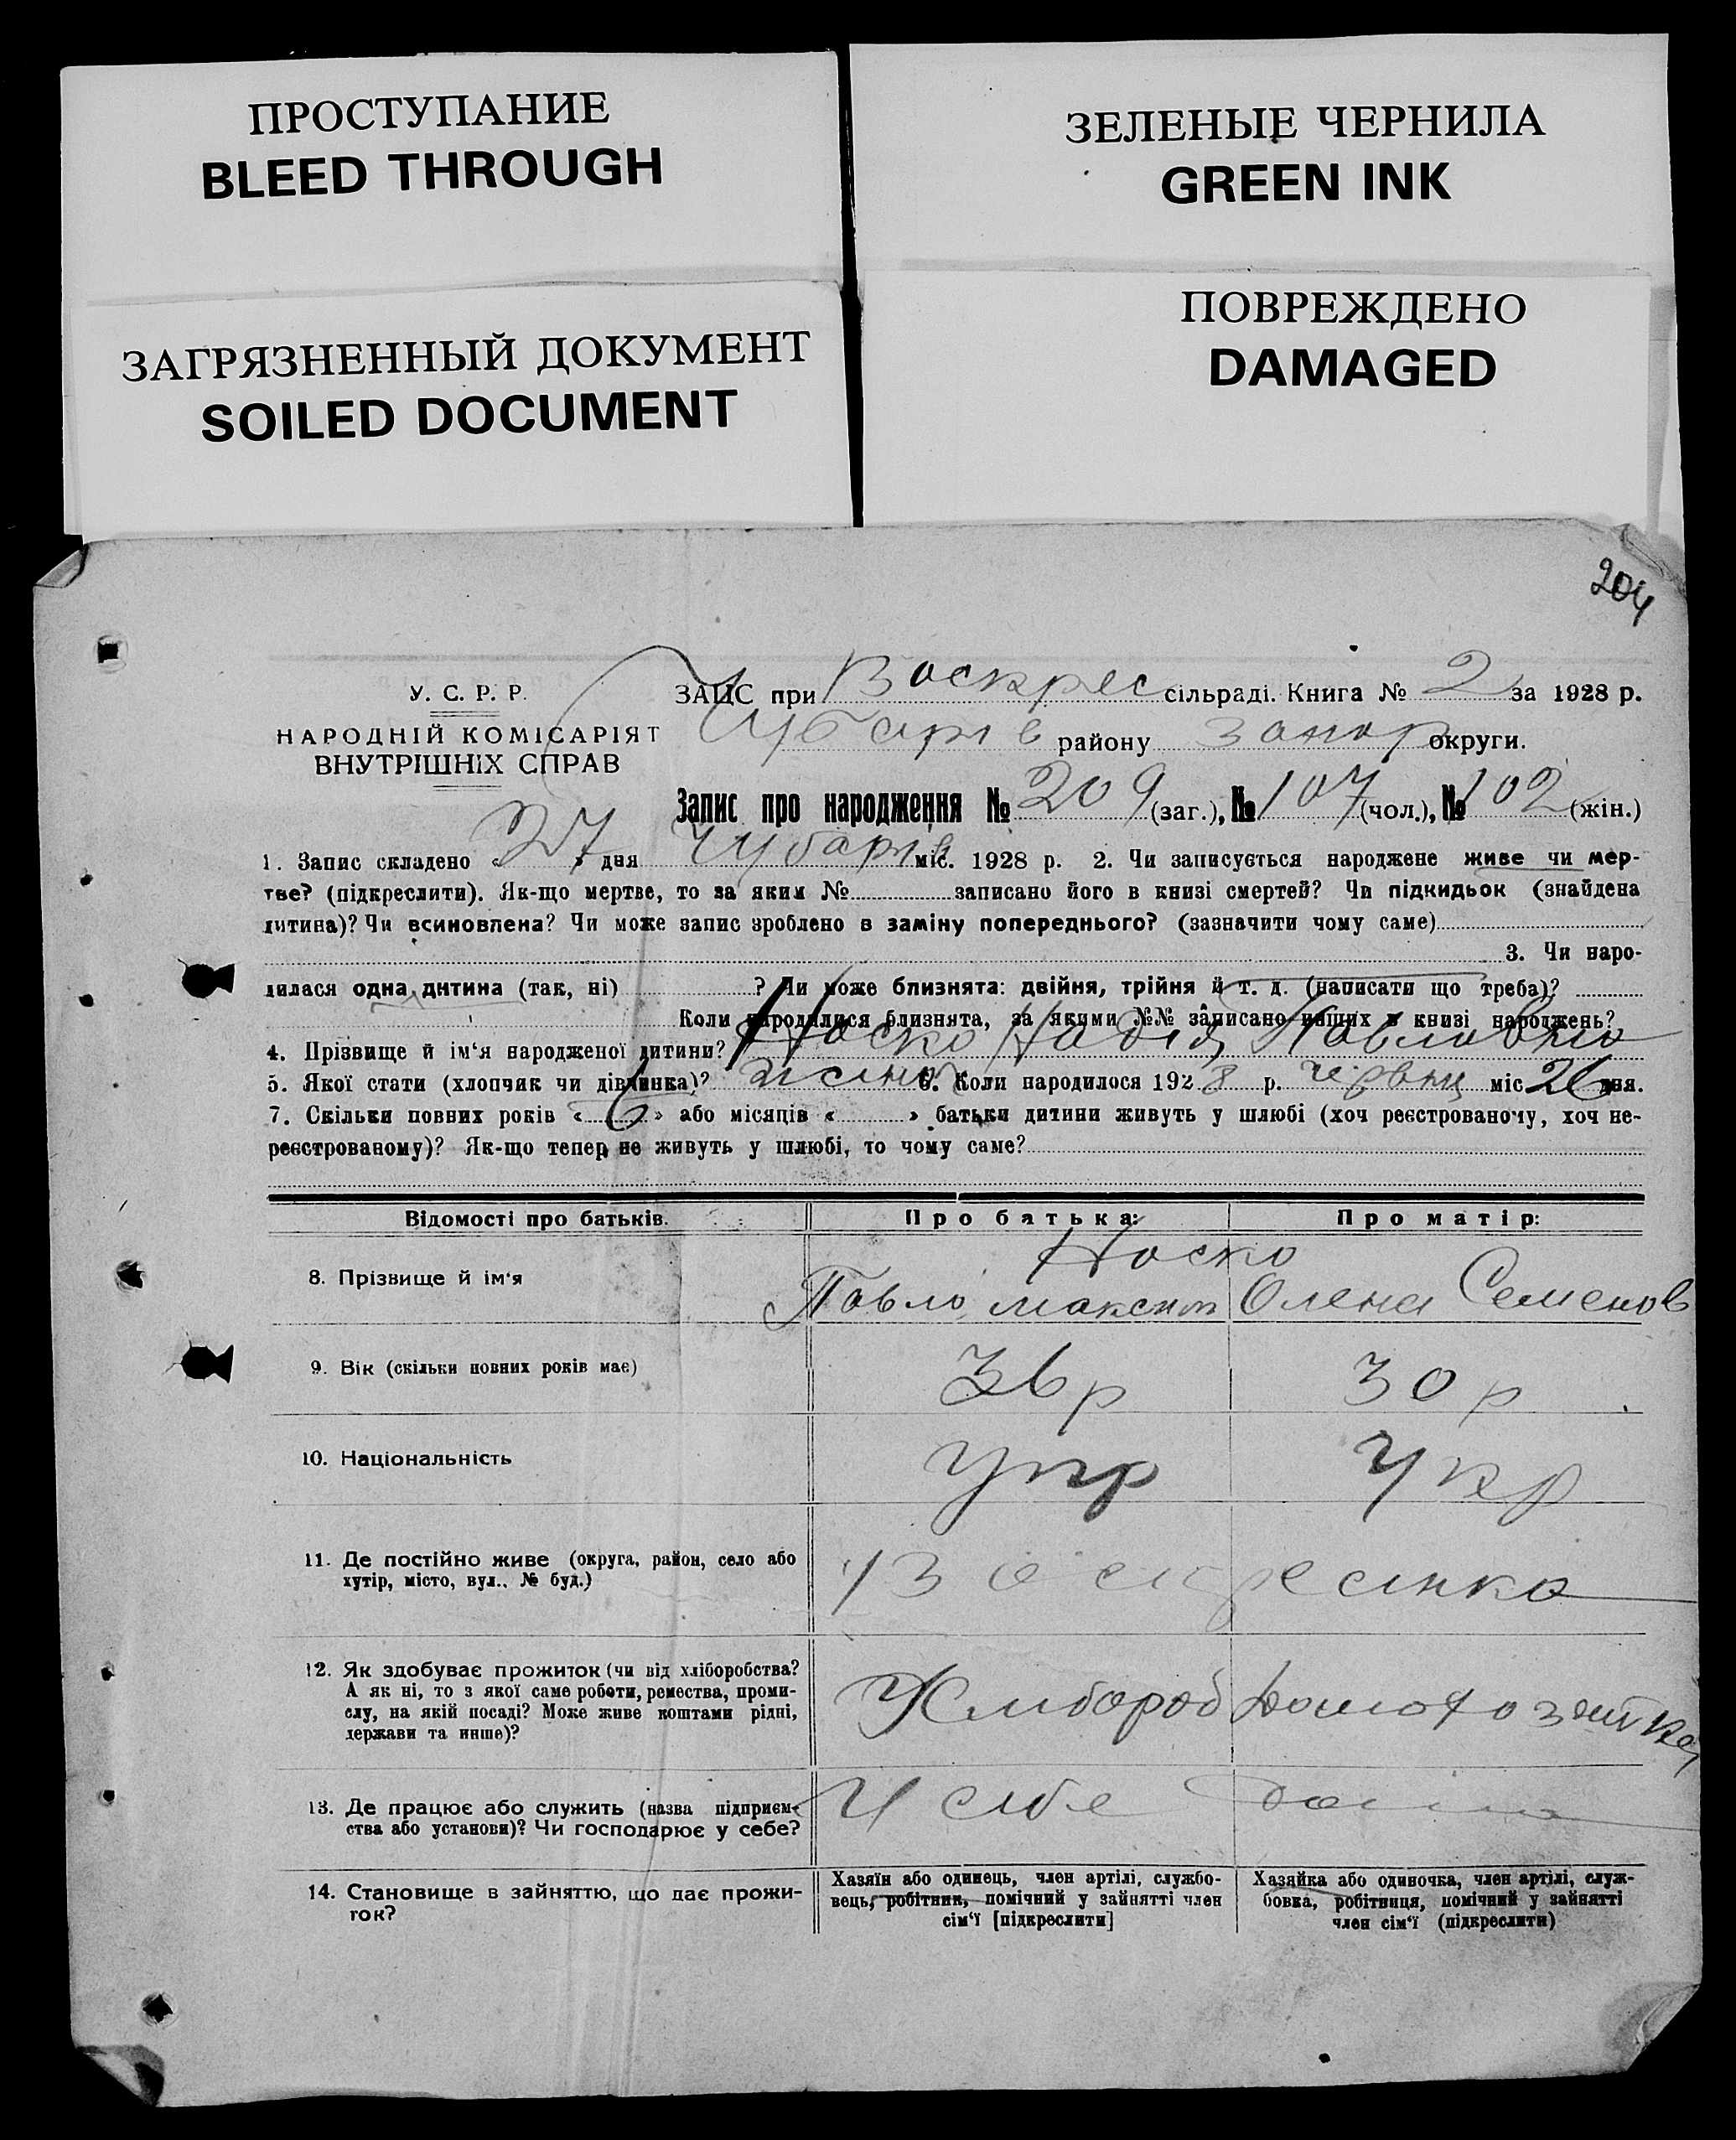 ПРОСТУПАНИЕ
BLEED THROUGH
ЗЕЛЕНЫЕ ЧЕРНИЛА
GREEN INK
ЗАГРЯЗНЕННЫЙ ДОКУМЕНТ
SOILED DOCUMENT
ПОВРЕЖДЕНО
DAMAGED
204
У. С. Р. Р.
НАРОДНІЙ КОМІСАРІЯТ
ВНУТРІШНІХ СПРАВ
ЗАЦС при Воскрес сільраді. Книга № 2 за 1928 р.
Чубарів району Запор округи.
Запис про народження № 209 (заг.), № 107 (чол.), № 102 (жін.)
1. Запис складено « 27 » дня Чубарів міс. 1928 р. 2. Чи записується народжене живе чи мер-
тве? (підкреслити). Як-що мертве, то за яким № записано його в книзі смертей? Чи підкидьок (знайдена
дитина)? Чи всиновлена? Чи може запис зроблено в заміну попереднього? (зазначити чому саме)
3. Чи наро-
дилася одна дитина (так, ні) ? Чи може близнята: двійня, трійня й т. д. (написати що треба)?
Коли народилися близнята, за якими №№ записано инших в книзі народжень?
4. Прізвище й ім'я народженої дитини? Носко Надія Павлівна
5. Якої стати (хлопчик чи дівчинка)? жіноч 6. Коли народилося 1928 р. червня міс 26 дня.
7. Скільки повних років « 6 » або місяців « » батьки дитини живуть у шлюбі (хоч реєстрованому, хоч не-
реєстрованому)? Як-що тепер не живуть у шлюбі, то чому саме?
Відомості про батьків. Про батька: Про матір:
8. Прізвище й ім'я Носко
Павло Максим Олена Семенов
9. Вік (скільки повних років має) 36 р 30 р
10. Національність Укр Укр
11. Де постійно живе (округа, район, село або
хутір, місто, вул., № буд.) Воскресінка
12. Як здобуває прожиток (чи від хліборобства?
А як ні, то з якої саме роботи, ремества, проми-
слу, на якій посаді? Може живе коштами рідні,
держави та инше)? Хлибороб Домохозяйка
13. Де працює або служить (назва підприєм-
ства або установи)? Чи господарює у себе? У себе дома
14. Становище в зайняттю, що дає прожи-
ток?
Хазяїн або одинець, член артілі, службо-
вець, робітник, помічний у зайнятті член
сім'ї [підкреслити]
Хазяйка або одиночка, член артілі, служ-
бовка, робітниця, помічний у зайнятті
член сім'ї (підкреслити)